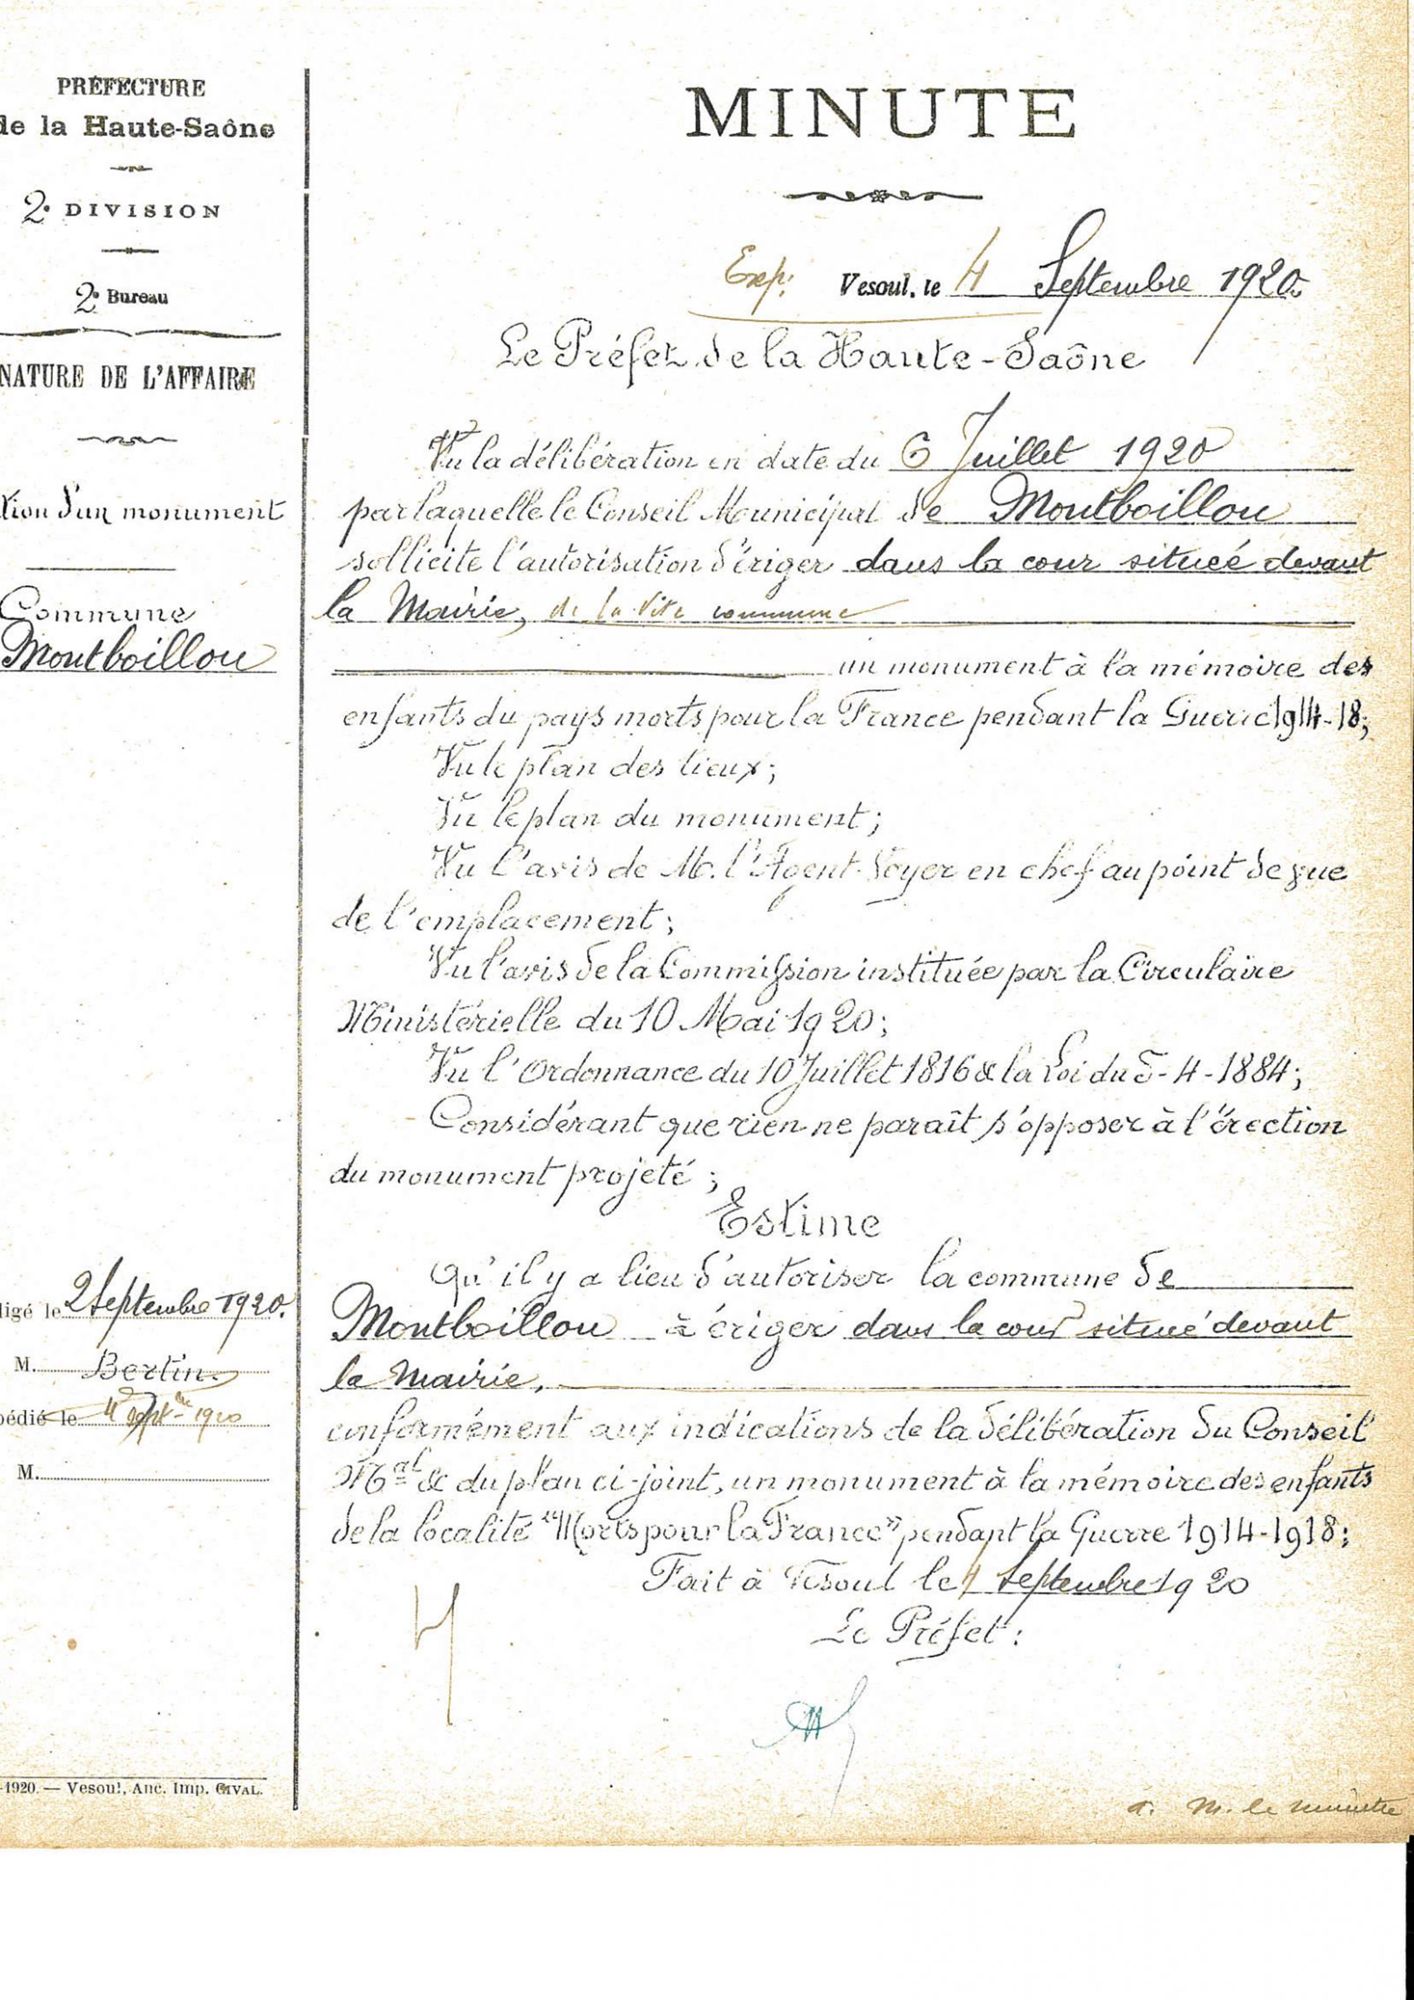 PRÉFECTURE
de la Haute-Saône
2e DIVISION
2e Bureau
NATURE DE L'AFFAIRE
tion d'un monument
Commune
Montboillon
ligé le 2 Septembre 1920.
M. Bertin
pédié le 4 Sept-bre 1920
M.
-1920. — Vesoul, Anc. Imp. CIVAL.
MINUTE
Exp: Vesoul, le 4 Septembre 1920.
Le Préfet de la Haute-Saône
Vu la délibération en date du 6 Juillet 1920
par laquelle le Conseil Municipal de Montboillon
sollicite l'autorisation d'ériger dans la cour située devant
la Mairie, de la dite commune
un monument à la mémoire des
enfants du pays morts pour la France pendant la Guerre 1914-18;
Vu le plan des lieux;
Vu le plan du monument;
Vu l'avis de M. l'Agent-Voyer en chef au point de vue
de l'emplacement;
Vu l'avis de la Commission instituée par la Circulaire
Ministérielle du 10 Mai 1920;
Vu l'Ordonnance du 10 Juillet 1816 & la Loi du 5-4-1884;
Considérant que rien ne paraît s'opposer à l'érection
du monument projeté;
Estime
Qu'il y a lieu d'autoriser la commune de
Montboillon à ériger dans la cour situé devant
la Mairie,
conformément aux indications de la délibération du Conseil
Mal & du plan ci-joint, un monument à la mémoire des enfants
de la localité "Morts pour la France" pendant la Guerre 1914-1918;
Fait à Vesoul le 4 Septembre 1920
Le Préfet:
à M. le ministre